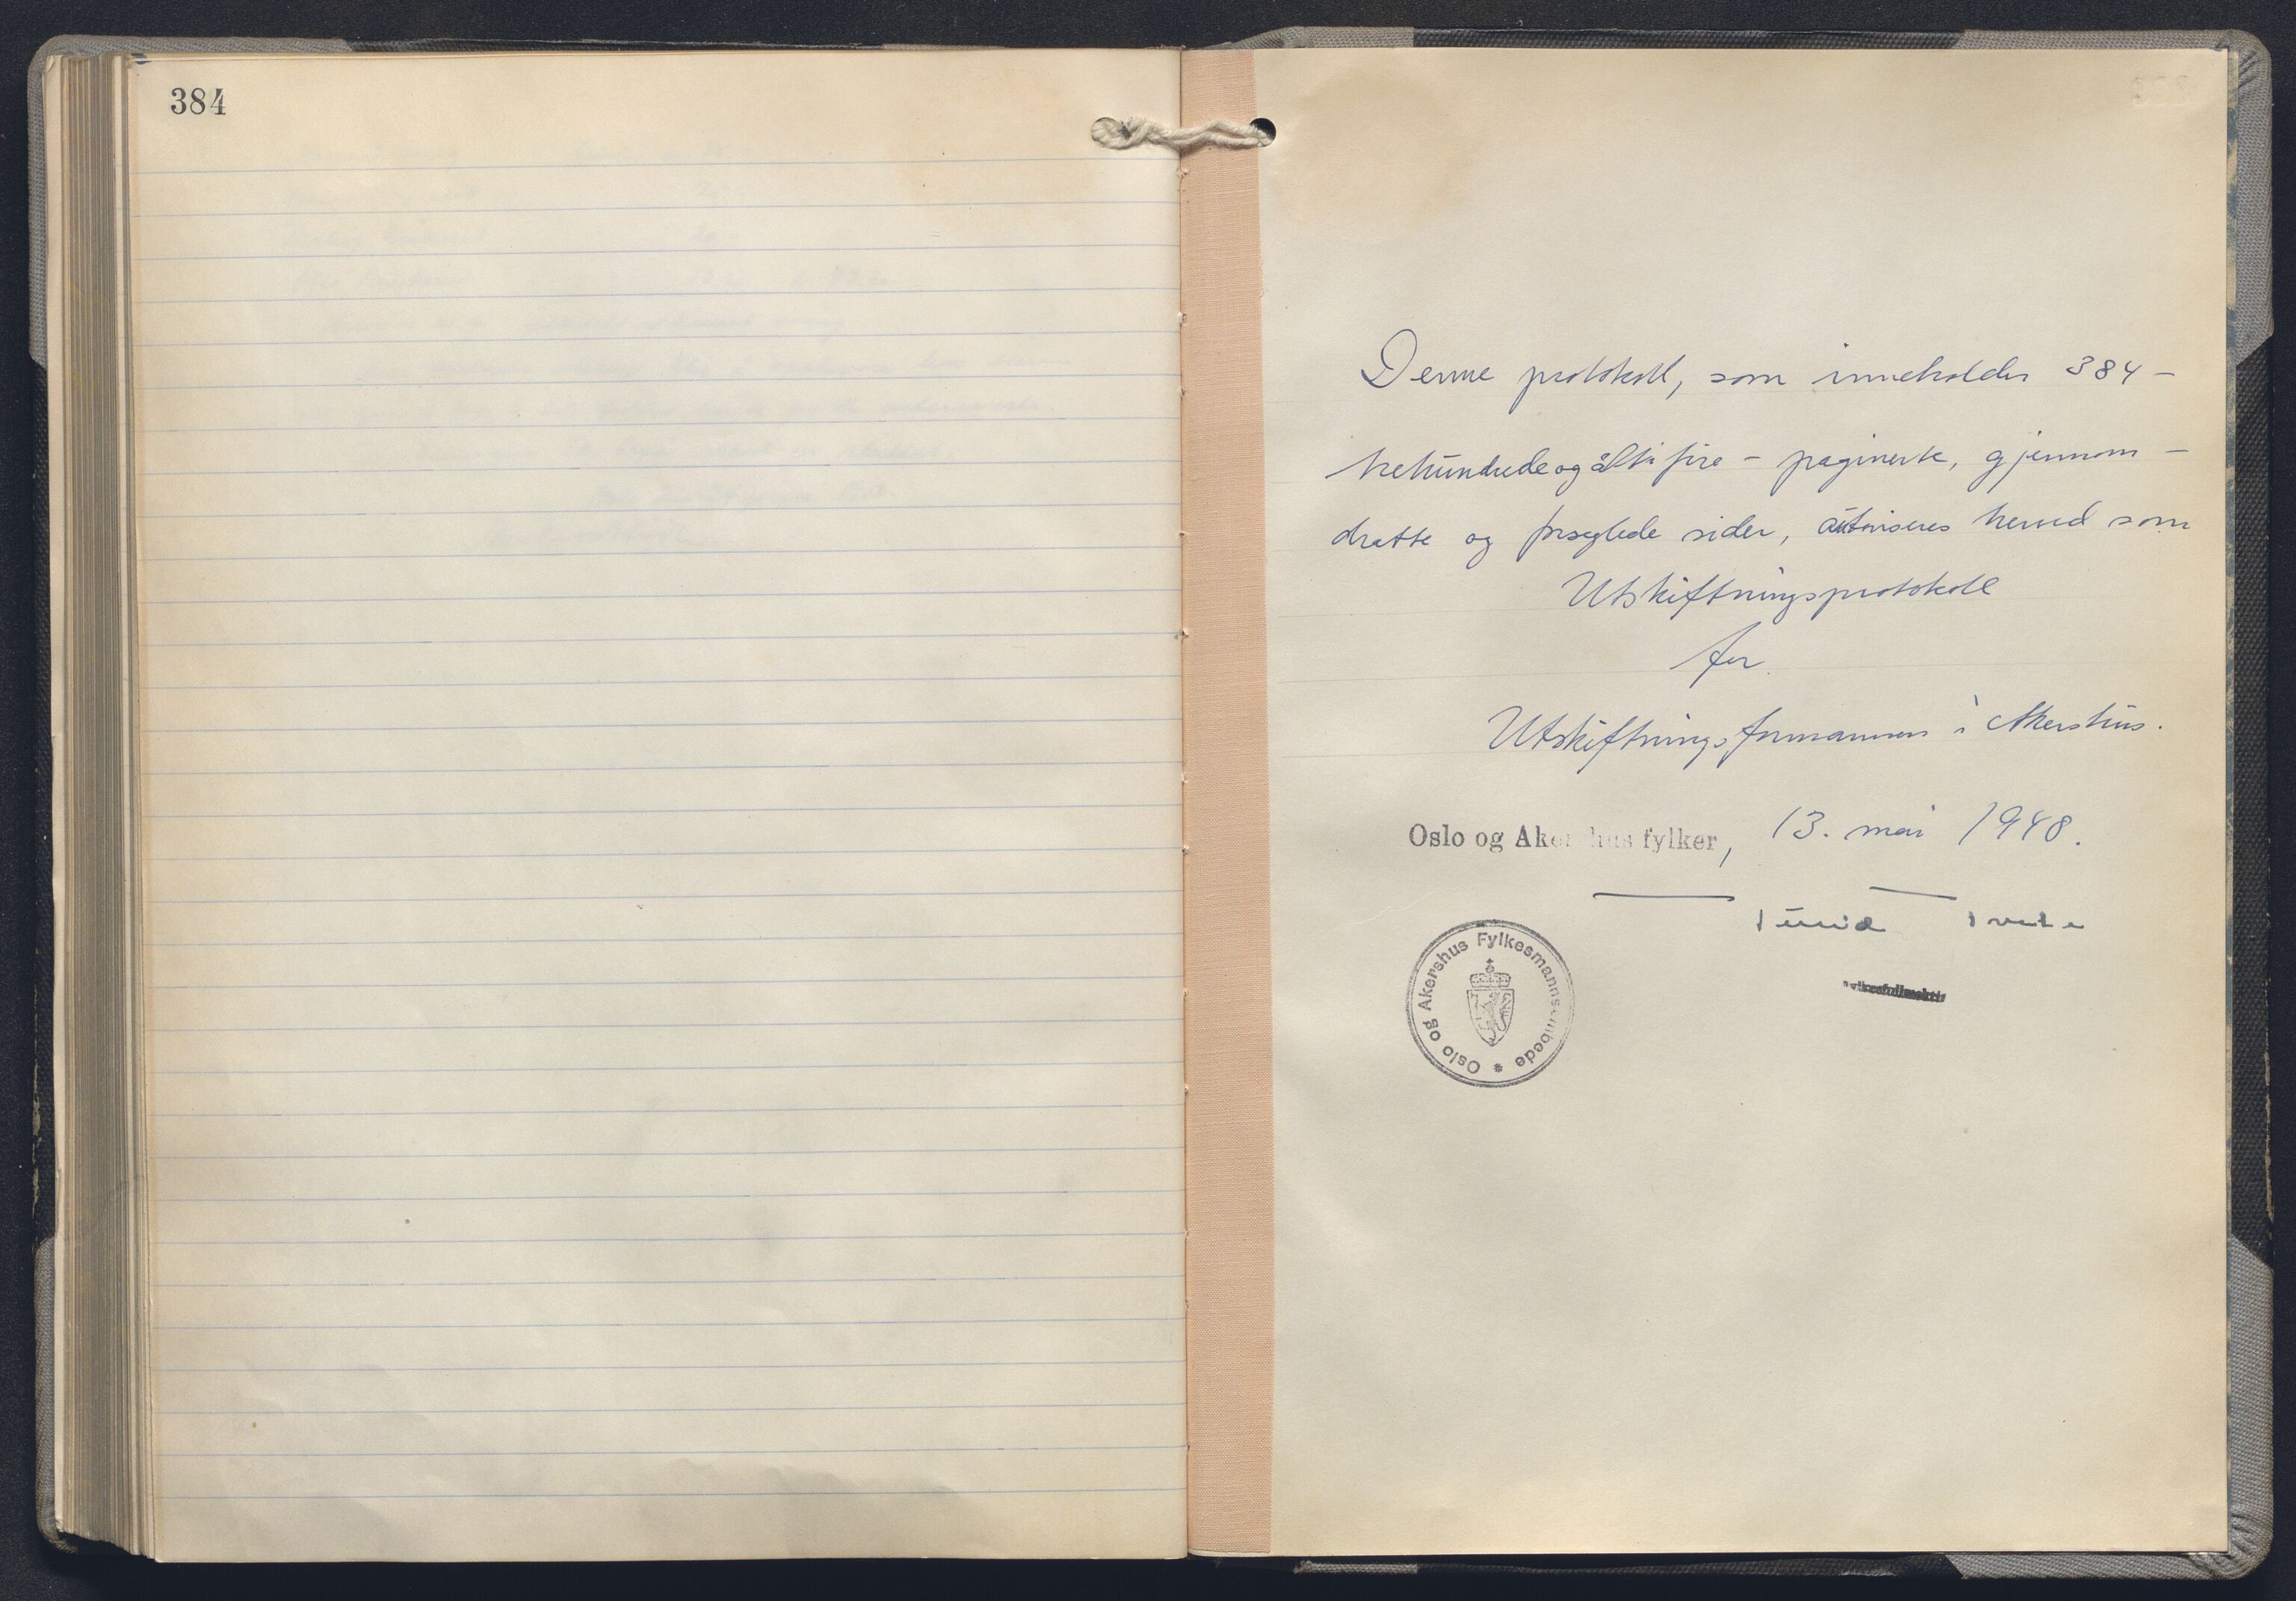 384
Denne protokoll, som inneholder 384 –
trehundredeogåttifire – paginerte, gjennom –
dratte og forseglede sider, autoriseres herved som
Utskiftningsprotokoll
for
Utskiftningsformannen i Akershus.
Oslo og Akershus fylker, 13. mai 1948.
Oslo og Akershus Fylkesmannsembede *